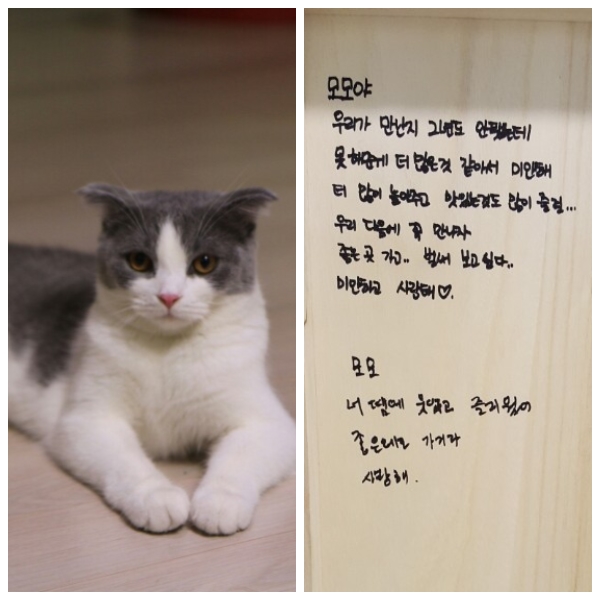 모모야
우리가 만난지 2년도 안됐는데
못해준게 더 많은것 같아서 미안해
더 많이 놀아주고 맛있는것도 많이 줄걸...
우리 다음에 꼭 만나자
좋은 곳 가고.. 벌써 보고싶다..
미안하고 사랑해♡.
모모
너 땜에 웃었고 즐거웠어
좋은데로 가거라
사랑해.